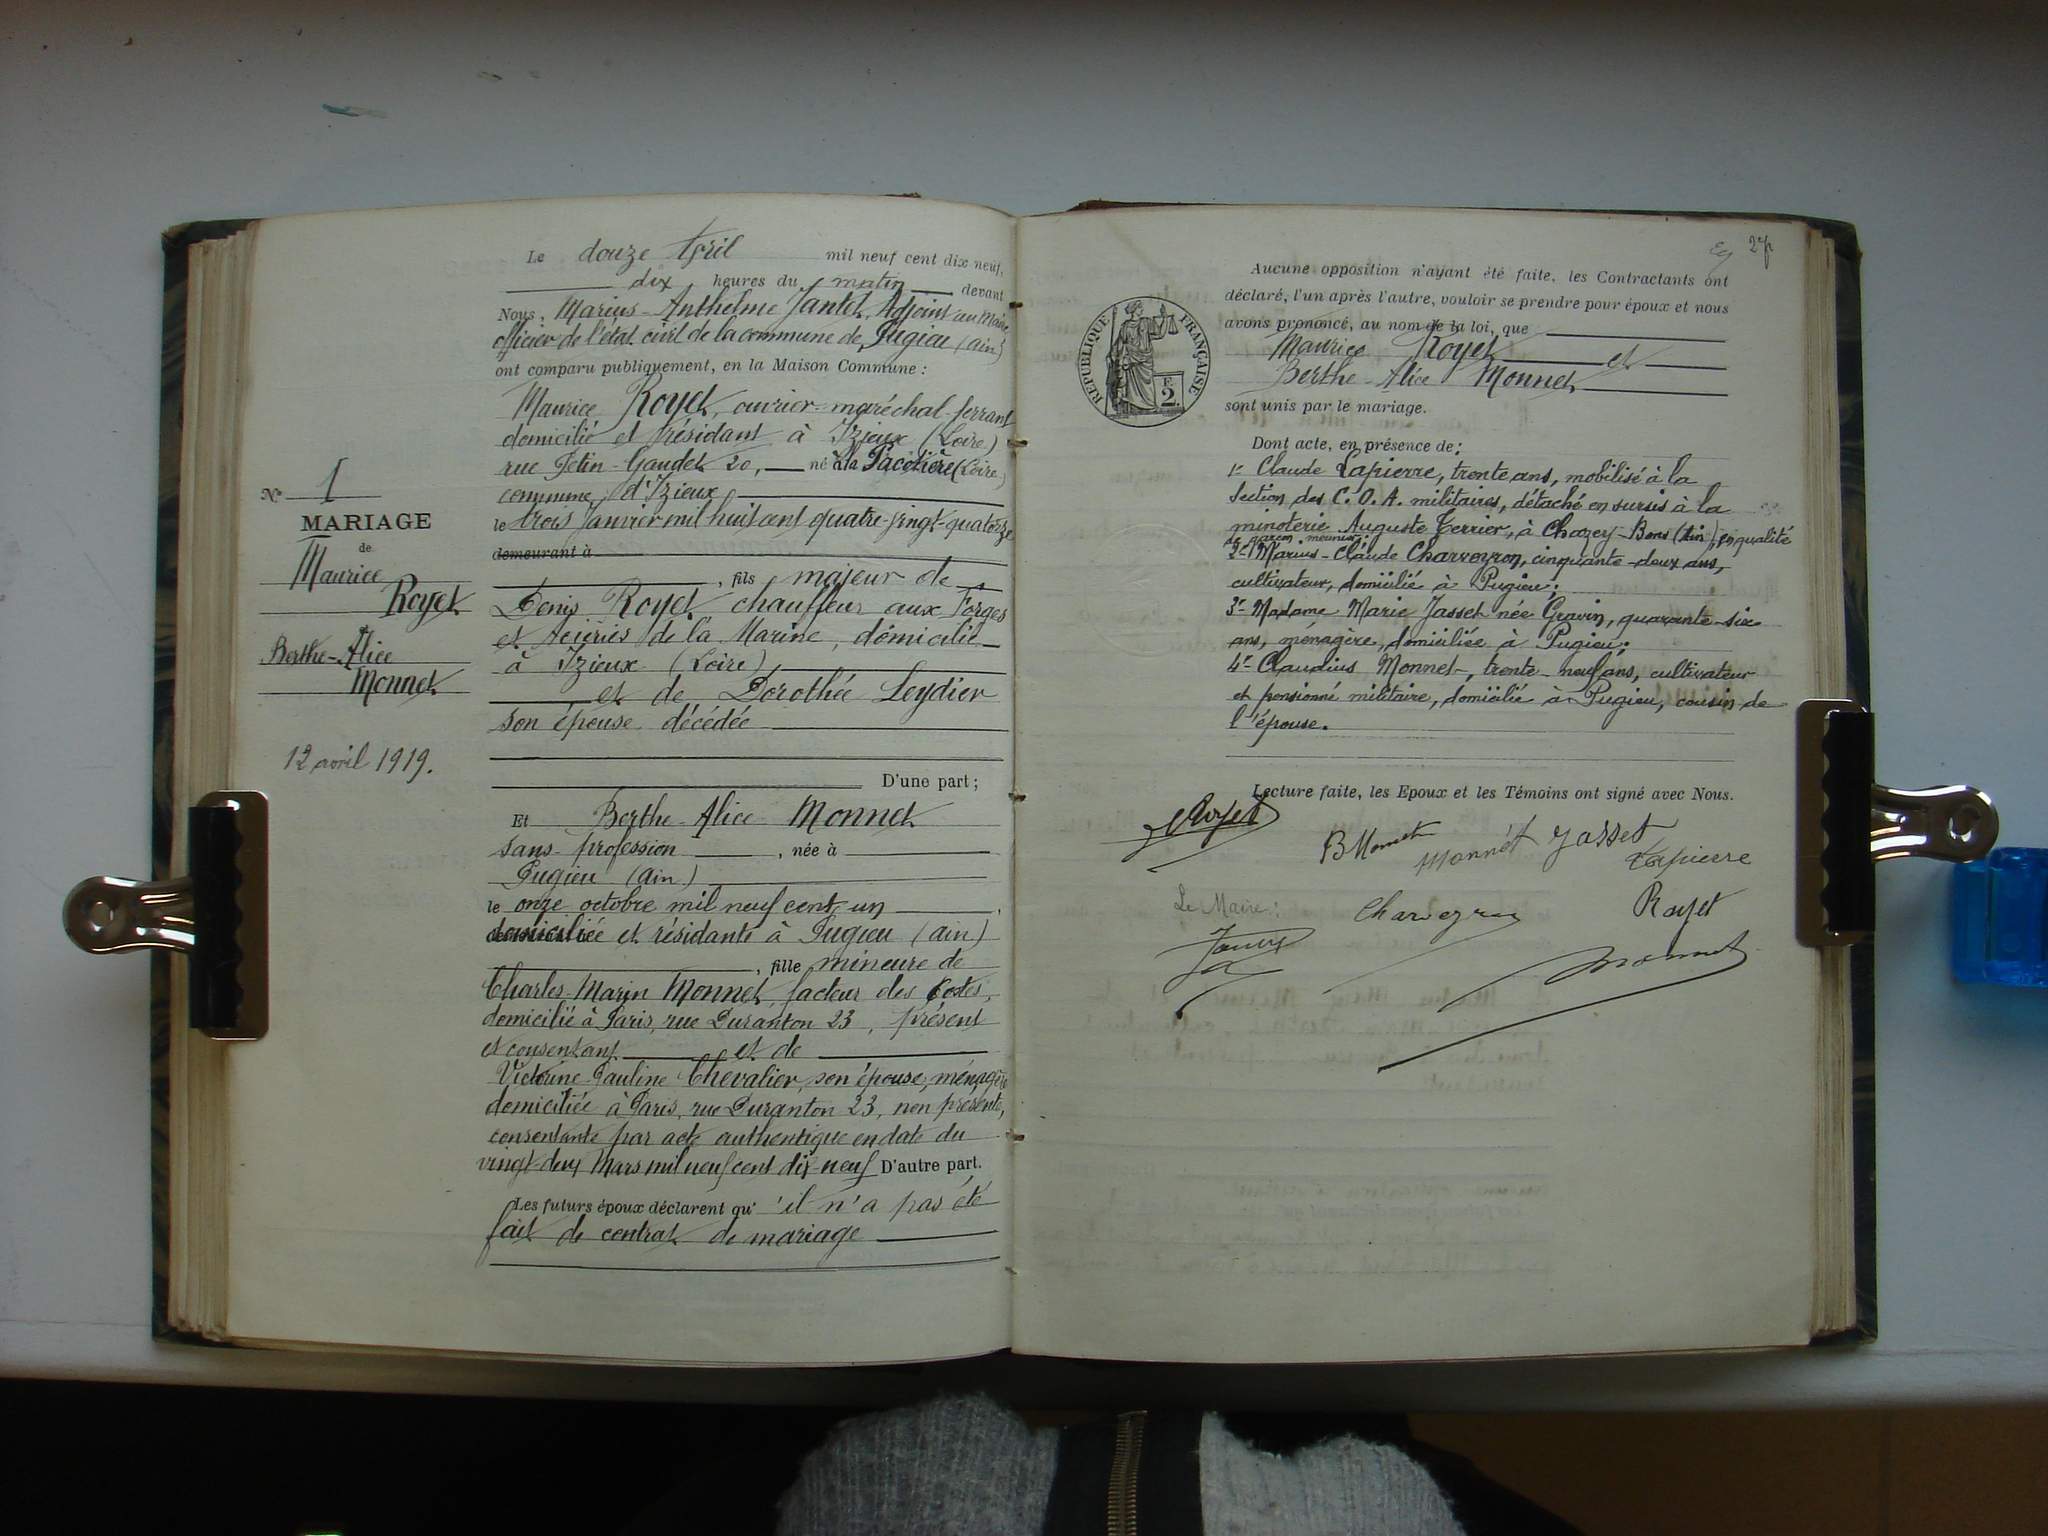 Le douze Avril mil neuf cent dix neuf,
dix heures du matin devant
Nous, Marius-Anthelme Jantet, Adjoint au Maire
officier de l'état civil de la commune de Pugieu (Ain)
ont comparu publiquement, en la Maison Commune :
Maurice Royet, ouvrier-maréchal-ferrant
domicilié et résidant à Izieux (Loire)
rue Petin-Gaudet 20, né à la Pacotière (Loire)
commune d'Izieux
le trois Janvier mil huit cent quatre-vingt-quatorze
demeurant à
, fils majeur de
Denis Royet chauffeur aux Forges
et Aciéries de la Marine, domicilié
à Izieux (Loire)
et de Dorothée Leydier
son épouse décédée
D'une part ;
Nº 1
MARIAGE
de
Maurice
Royet
Berthe-Alice
Monnet
12 avril 1919.
Et Berthe-Alice Monnet
sans profession, née à
Pugieu (Ain)
le onze octobre mil neuf cent un,
domiciliée et résidante à Pugieu (Ain)
, fille mineure de
Charles-Marin Monnet, facteur des Postes,
domicilié à Paris, rue Duranton 23, présent
et consentant et de
Victorine-Pauline Chevalier, son épouse, ménagère
domiciliée à Paris, rue Duranton 23, non présente,
consentante par acte authentique en date du
vingt-deux Mars mil neuf cent dix-neuf D'autre part.
Les futurs époux déclarent qu' 'il n'a pas été
fait de contrat de mariage
27
Aucune opposition n'ayant été faite, les Contractants ont
déclaré, l'un après l'autre, vouloir se prendre pour époux et nous
avons prononcé, au nom de la loi, que
Maurice Royet et
Berthe-Alice Monnet
sont unis par le mariage.
RÉPUBLIQUE FRANÇAISE
F.
2.
Dont acte, en présence de :
1º Claude Lapierre, trente ans, mobilisé à la
Section des C. O. A. militaires, détaché en sursis à la
minoterie Auguste Terrier, à Chazey-Bons (Ain), en qualité
de garçon meunier ;
2º Marius-Claude Charveyron, cinquante-deux ans,
cultivateur, domicilié à Pugieu ;
3º Madame Marie Jasset née Gravin, quarante-six
ans, ménagère, domiciliée à Pugieu ;
4º Claudius Monnet, trente-neuf ans, cultivateur
et pensionné militaire, domicilié à Pugieu, cousin de
l'épouse.
Lecture faite, les Epoux et les Témoins ont signé avec Nous.
Royet
B Monnet Monnet Jasset
Lapierre
Le Maire : Charveyron Royet
Jantet
Monnet